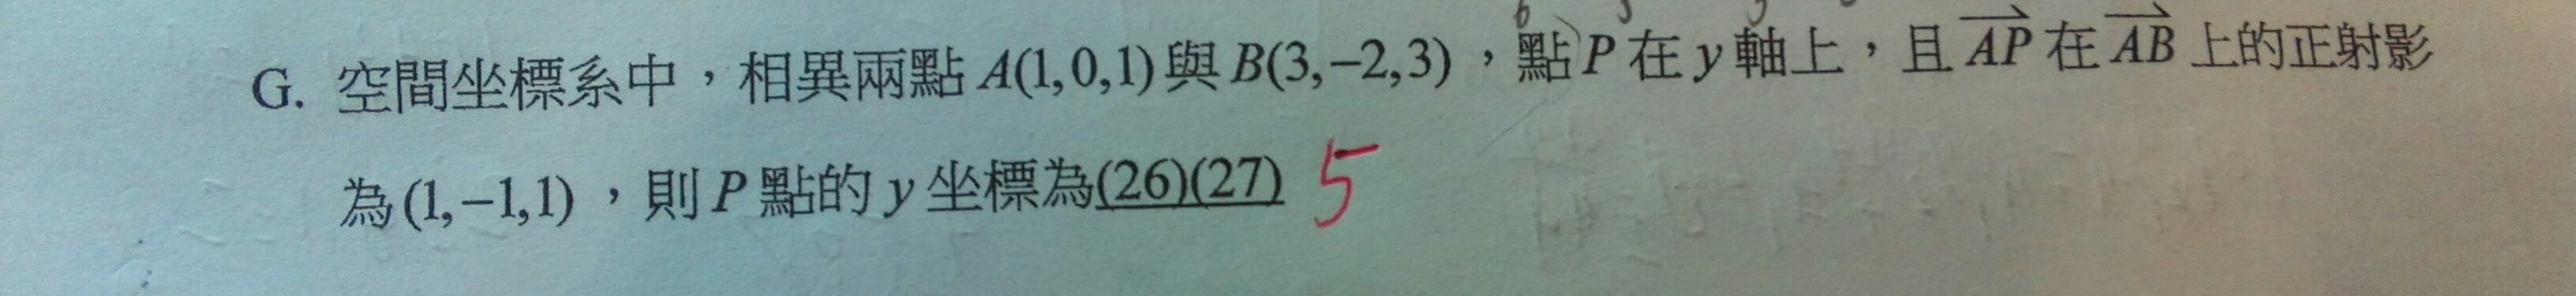 G. 空間坐標系中,相異兩點 A(1,0,1) 與 B(3,−2,3),點 P 在 y 軸上,且 AP 在 AB 上的正射影
為 (1,−1,1),則 P 點的 y 坐標為(26)(27) 5